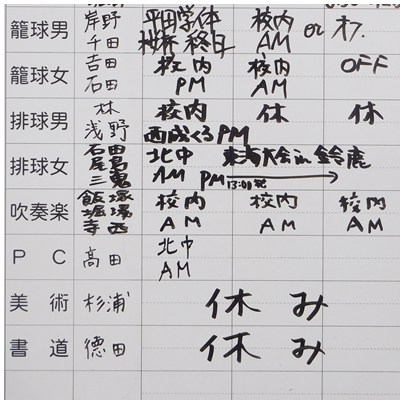 籠球男 岸野 平田学体 校内 or オフ
千田 終日 AM
籠球女 吉田 校内 校内 OFF
石田 PM AM
排球男 林 校内 休 休
浅野 西成くるPM
排球女 石田 北中 東海大会in鈴鹿
尾島 AM PM
三鬼 13:00発
吹奏楽 飯塚 校内 校内 校内
堀場 AM AM AM
寺西
PC 高田 北中
AM
美術 杉浦 休み
書道 德田 休み